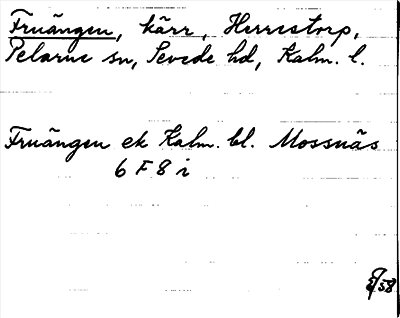 Fruängen, kärr, Herrstorp,
Pelarne sn, Sevede hd, Kalm. l.
Fruängen ek Kalm. bl. Mossnäs
6 F 8 i
58